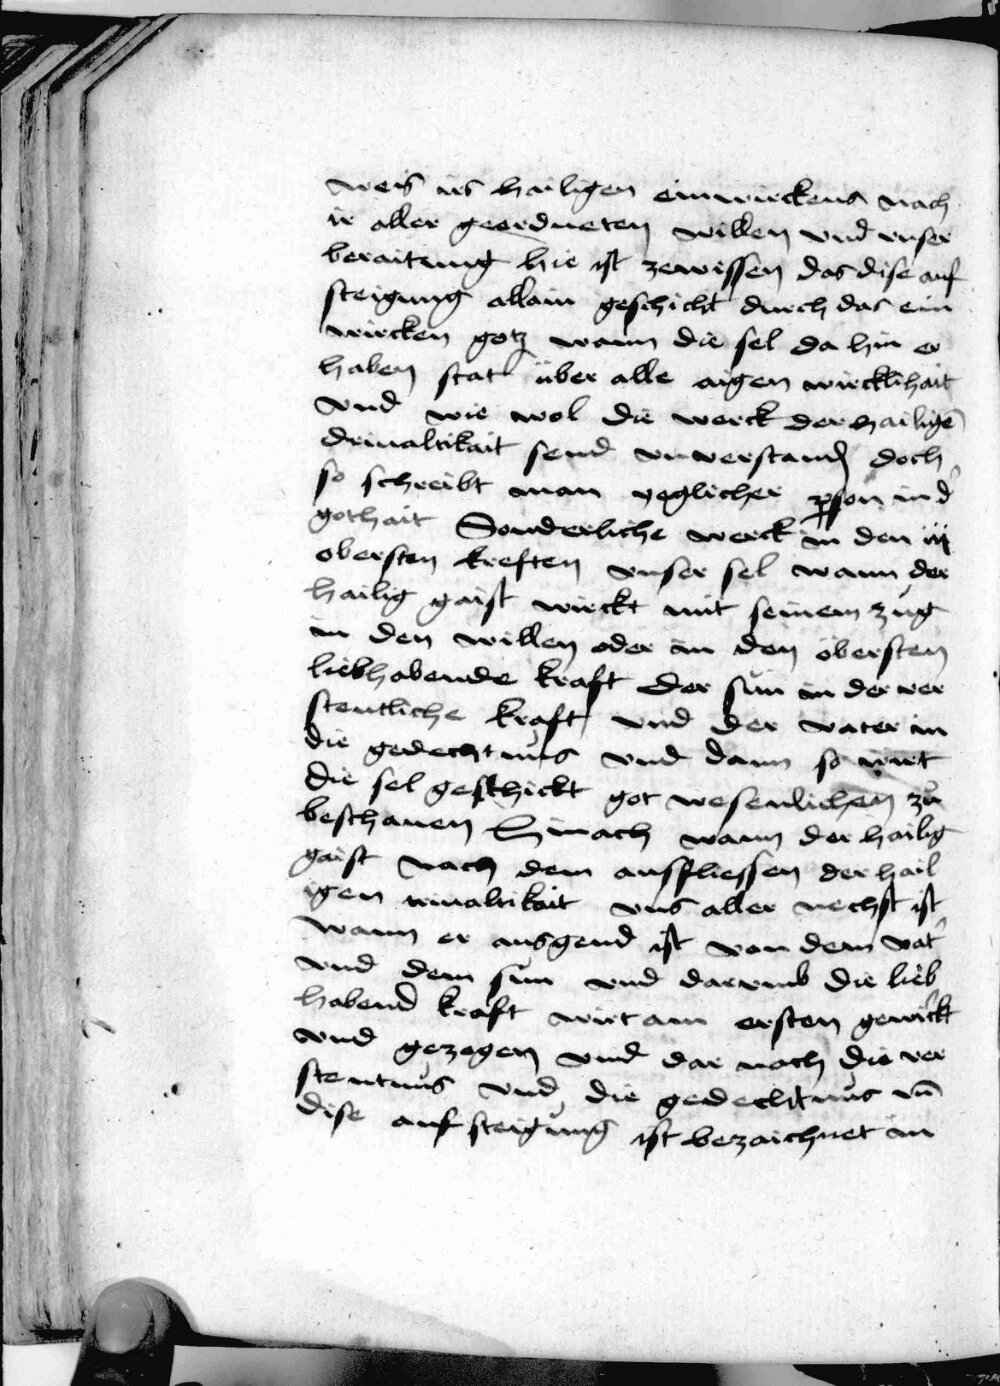 weis irs hailigen einwirckens nach
ir aller geordneten willen vnd vnser
beraitung hie ist zewissen das dise auf
steigung allain geschicht durch das ein
wircken gotz wann die sel da hin er
haben stat über alle aigen wircklihait
vnd wie wol die werck der hailigē
driualtikait send vnuerstand doch
so schreibt man yeglicher ꝑson in d'
gothait Sonderliche werck in den iij
obersten kreften vnser sel wann der
hailig gaist wirckt mit seinem zug
in den willen oder in den öbersten
liebhabende kraft der sun in der ver
stentliche kraft vnd der vater in
die gedechtnus vnd dann so wirt
die sel geschickt got wesenlichen zů
beschauen Hinach wann der hailig
gaist nach dem ausfliessen der hail
igen triualtikait vns aller nechst ist
wann er ausgend ist von dem vat'
vnd dem sun vnd darvmb die lieb
habend kraft wirt am ersten gewirckt
vnd gezogen vnd dar nach die ver
stentnus vnd die gedechtnus vn̄
dise aufsteigung ist bezaichnet in